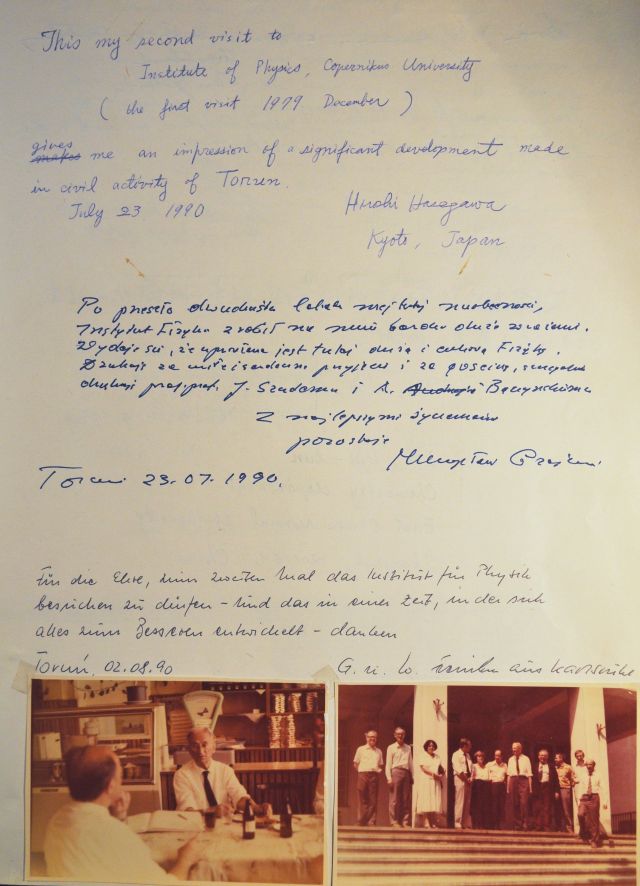 This my second visit to
Institute of Physics, Copernikus University
( the first visit 1979 December )
gives
makes me an impression of a significant development made
in civil activity of Torun.
July 23 1990
Hiroshi Hasegawa
Kyoto, Japan
Po przeszło dwudziestu latach mej tutaj nieobecności,
Instytut Fizyki zrobił na mnie bardzo duże wrażenie.
Wydaje się, że uprawiana jest tutaj duża i ciekawa Fizyka.
Dziękuję za miłe i serdeczne przyjęcie i za gościnę, szczególnie
dziękuję prof. prof. J. i A.
Z najlepszymi życzeniami
pozostaję
Toruń 23.07.1990.
Für die Ehre, zum zweiten Mal das Institut für Physik
besuchen zu dürfen – und das in einer Zeit, in der sich
alles zum Besseren entwickelt – danken
Toruń, 02.08.90
G. u. W. aus Karlsruhe